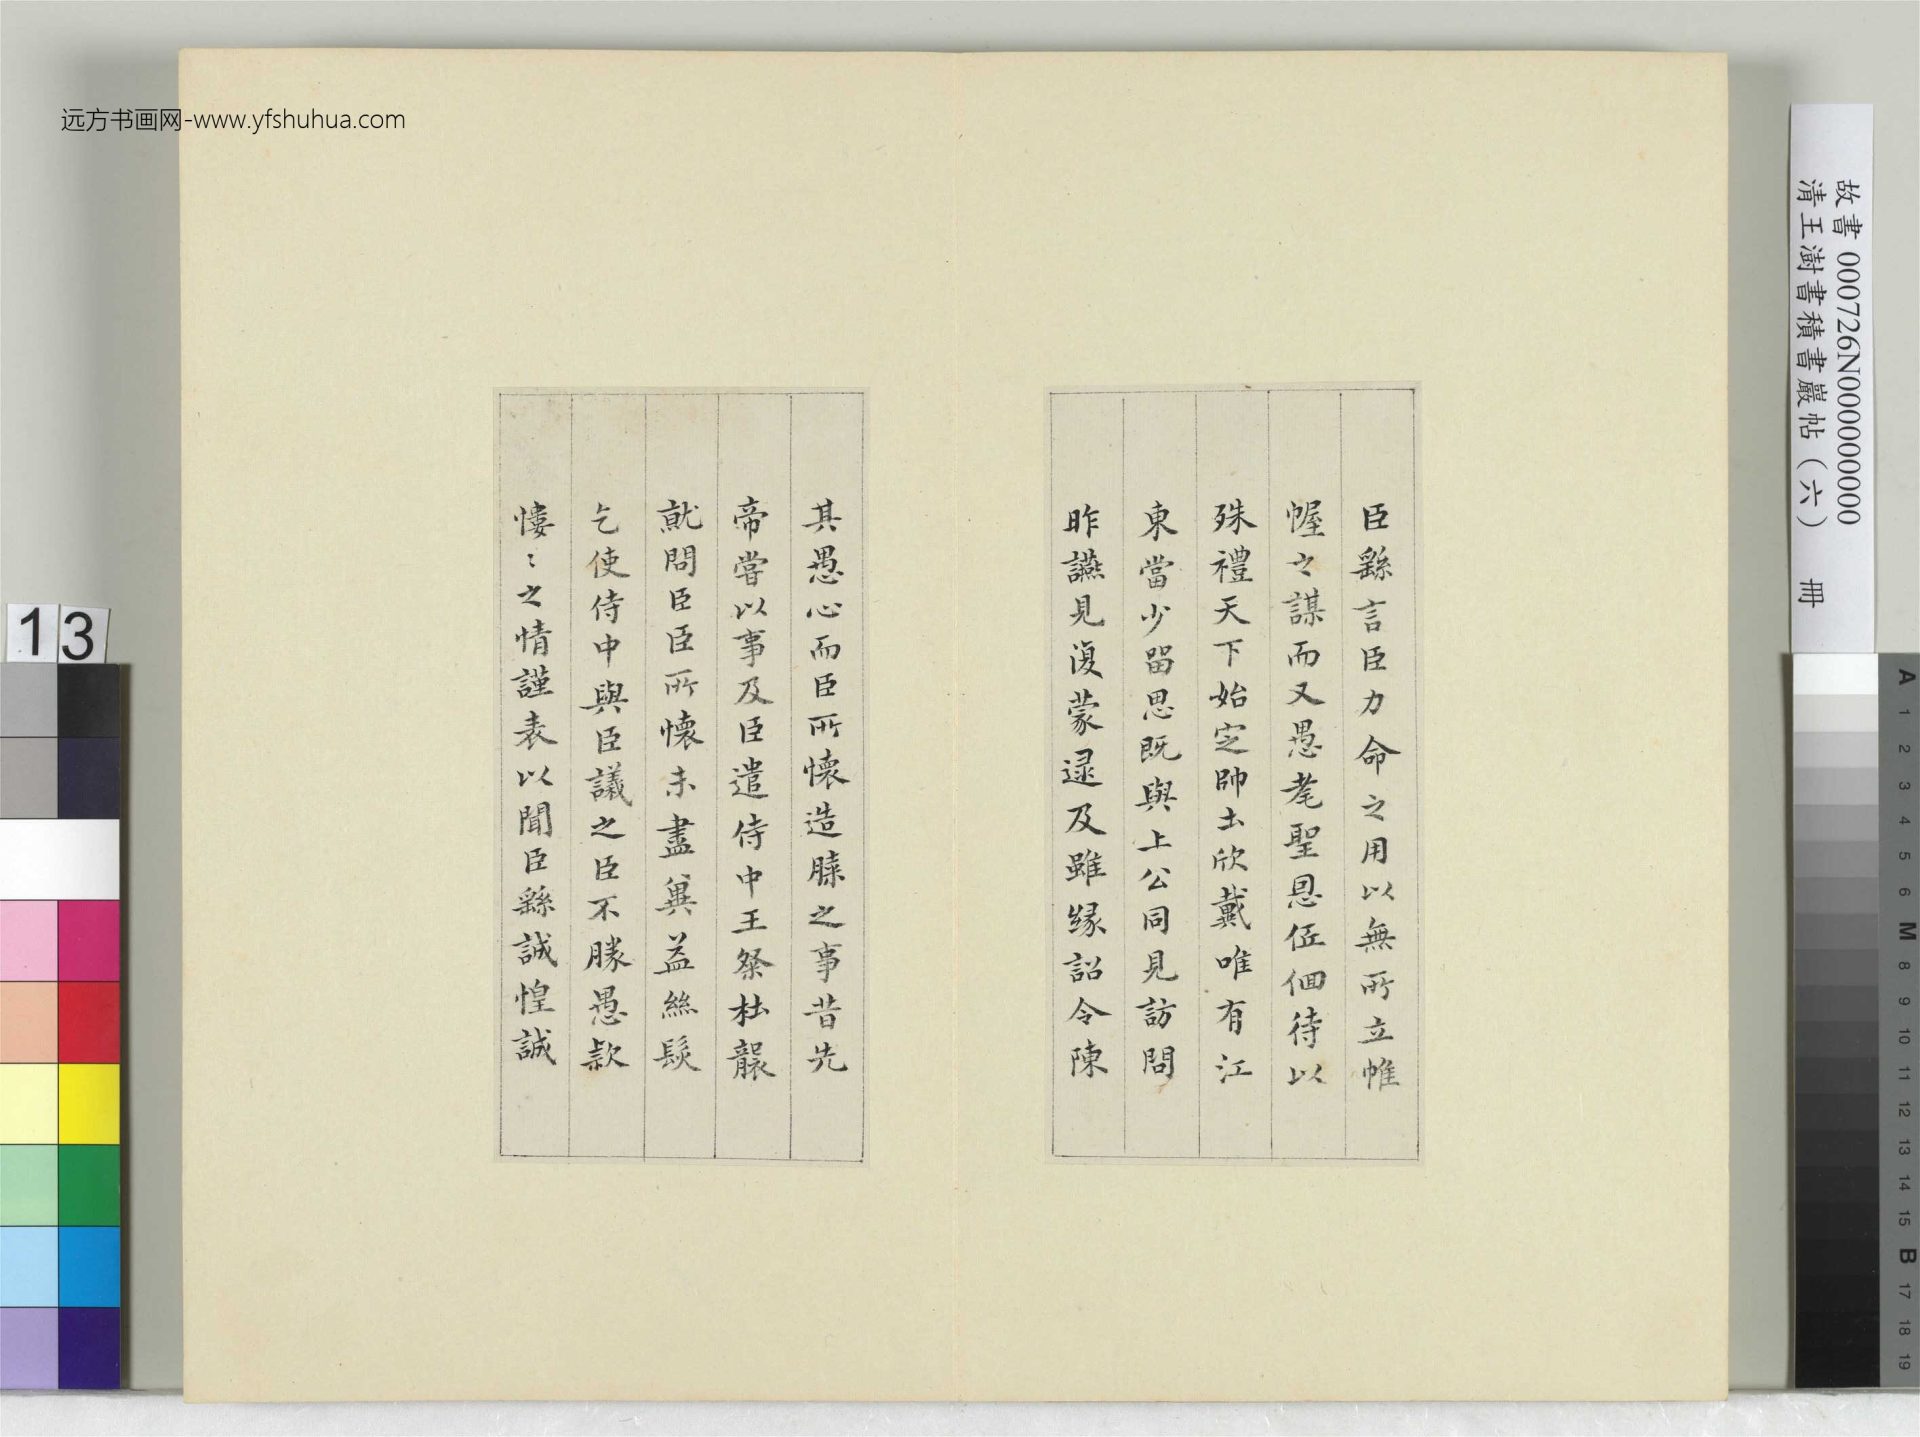 臣繇言臣力命之用以無所立帷
幄之謀而又愚耄聖恩伍佪待以
殊禮天下始定帥土欣戴唯有江
東當少留思既與上公同見訪問
昨讌見復蒙逮及雖緣詔令陳
其愚心而臣所懷造膝之事昔先
帝嘗以事及臣遣侍中王粲杜襲
就問臣臣所懷未盡兾益絲髮
乞使侍中與臣議之臣不勝愚款
慺〻之情謹表以聞臣繇誠惶誠
故書 000726N000000000
清王澍書積書巖帖(六) 冊
远方书画网-www.yfshuhua.com
13
A 1 2 3 4 5 6 M 8 9 10 11 12 13 14 15 B 17 18 19